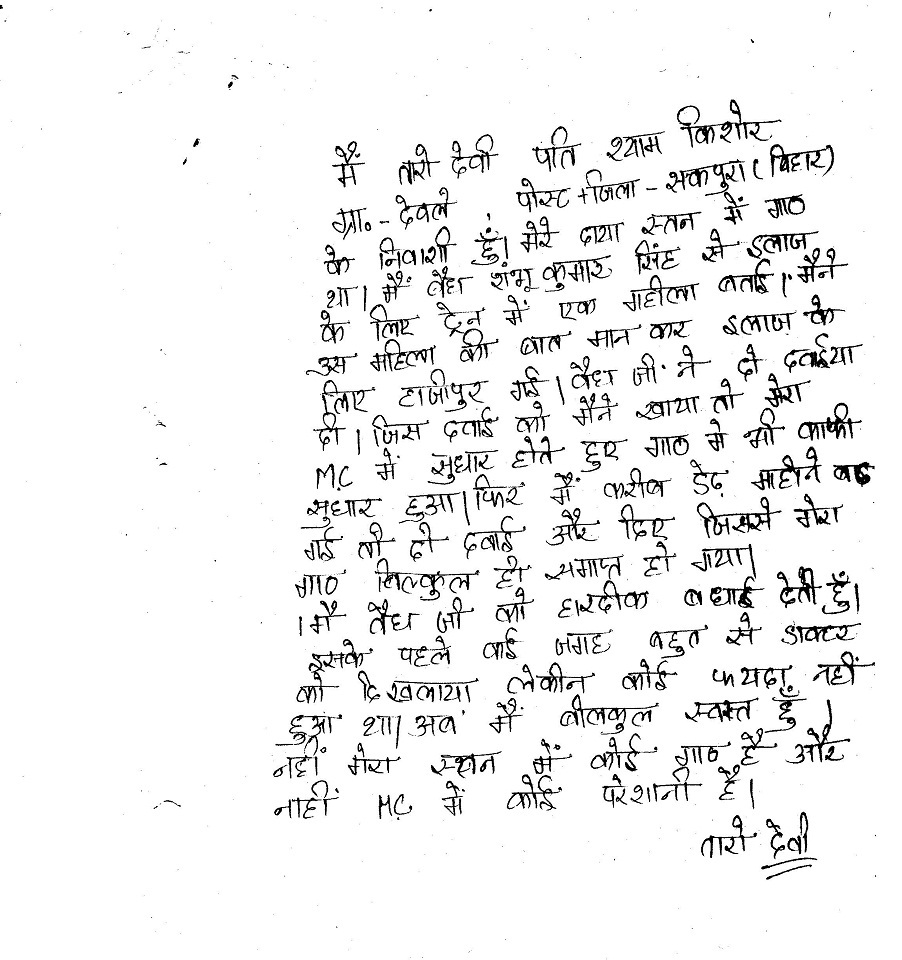 मैं तारो देवी पति श्याम किशोर
ग्रा॰ - देवले, पोस्ट + जिला - सकपुरा (बिहार)
के निवाशी हूँ। मेरे दाया स्तन में गाठ
था। मैं वैध शंभू कुमार सिंह से इलाज
के लिए ट्रेन में एक महीला बताई। मैने
उस महिला की बात मान कर इलाज के
लिए हाजीपुर गई। वैध जी ने दो दवाईया
दी। जिस दवाई को मैने खाया तो मेरा
M.C में सुधार होते हुए गाठ मे भी काफी
सुधार हुआ। फिर मैं करीब डेढ़ माहीने बाद
गई तो दो दवाई और दिए जिससे मेरा
गाठ बिल्कुल ही समाप्त हो गया।
। मै वैध जी को हारदीक बधाई देती हूँ।
इसके पहले कई जगह बहुत से डाक्टर
को दिखलाया लेकीन कोई फायदा नहीं
हुआ था। अब मैं बीलकुल स्वस्त हूँ।
नहीं मेरा स्थन में कोई गाठ है और
नाहीं M.C में कोई परेशानी है।
तारो देवी